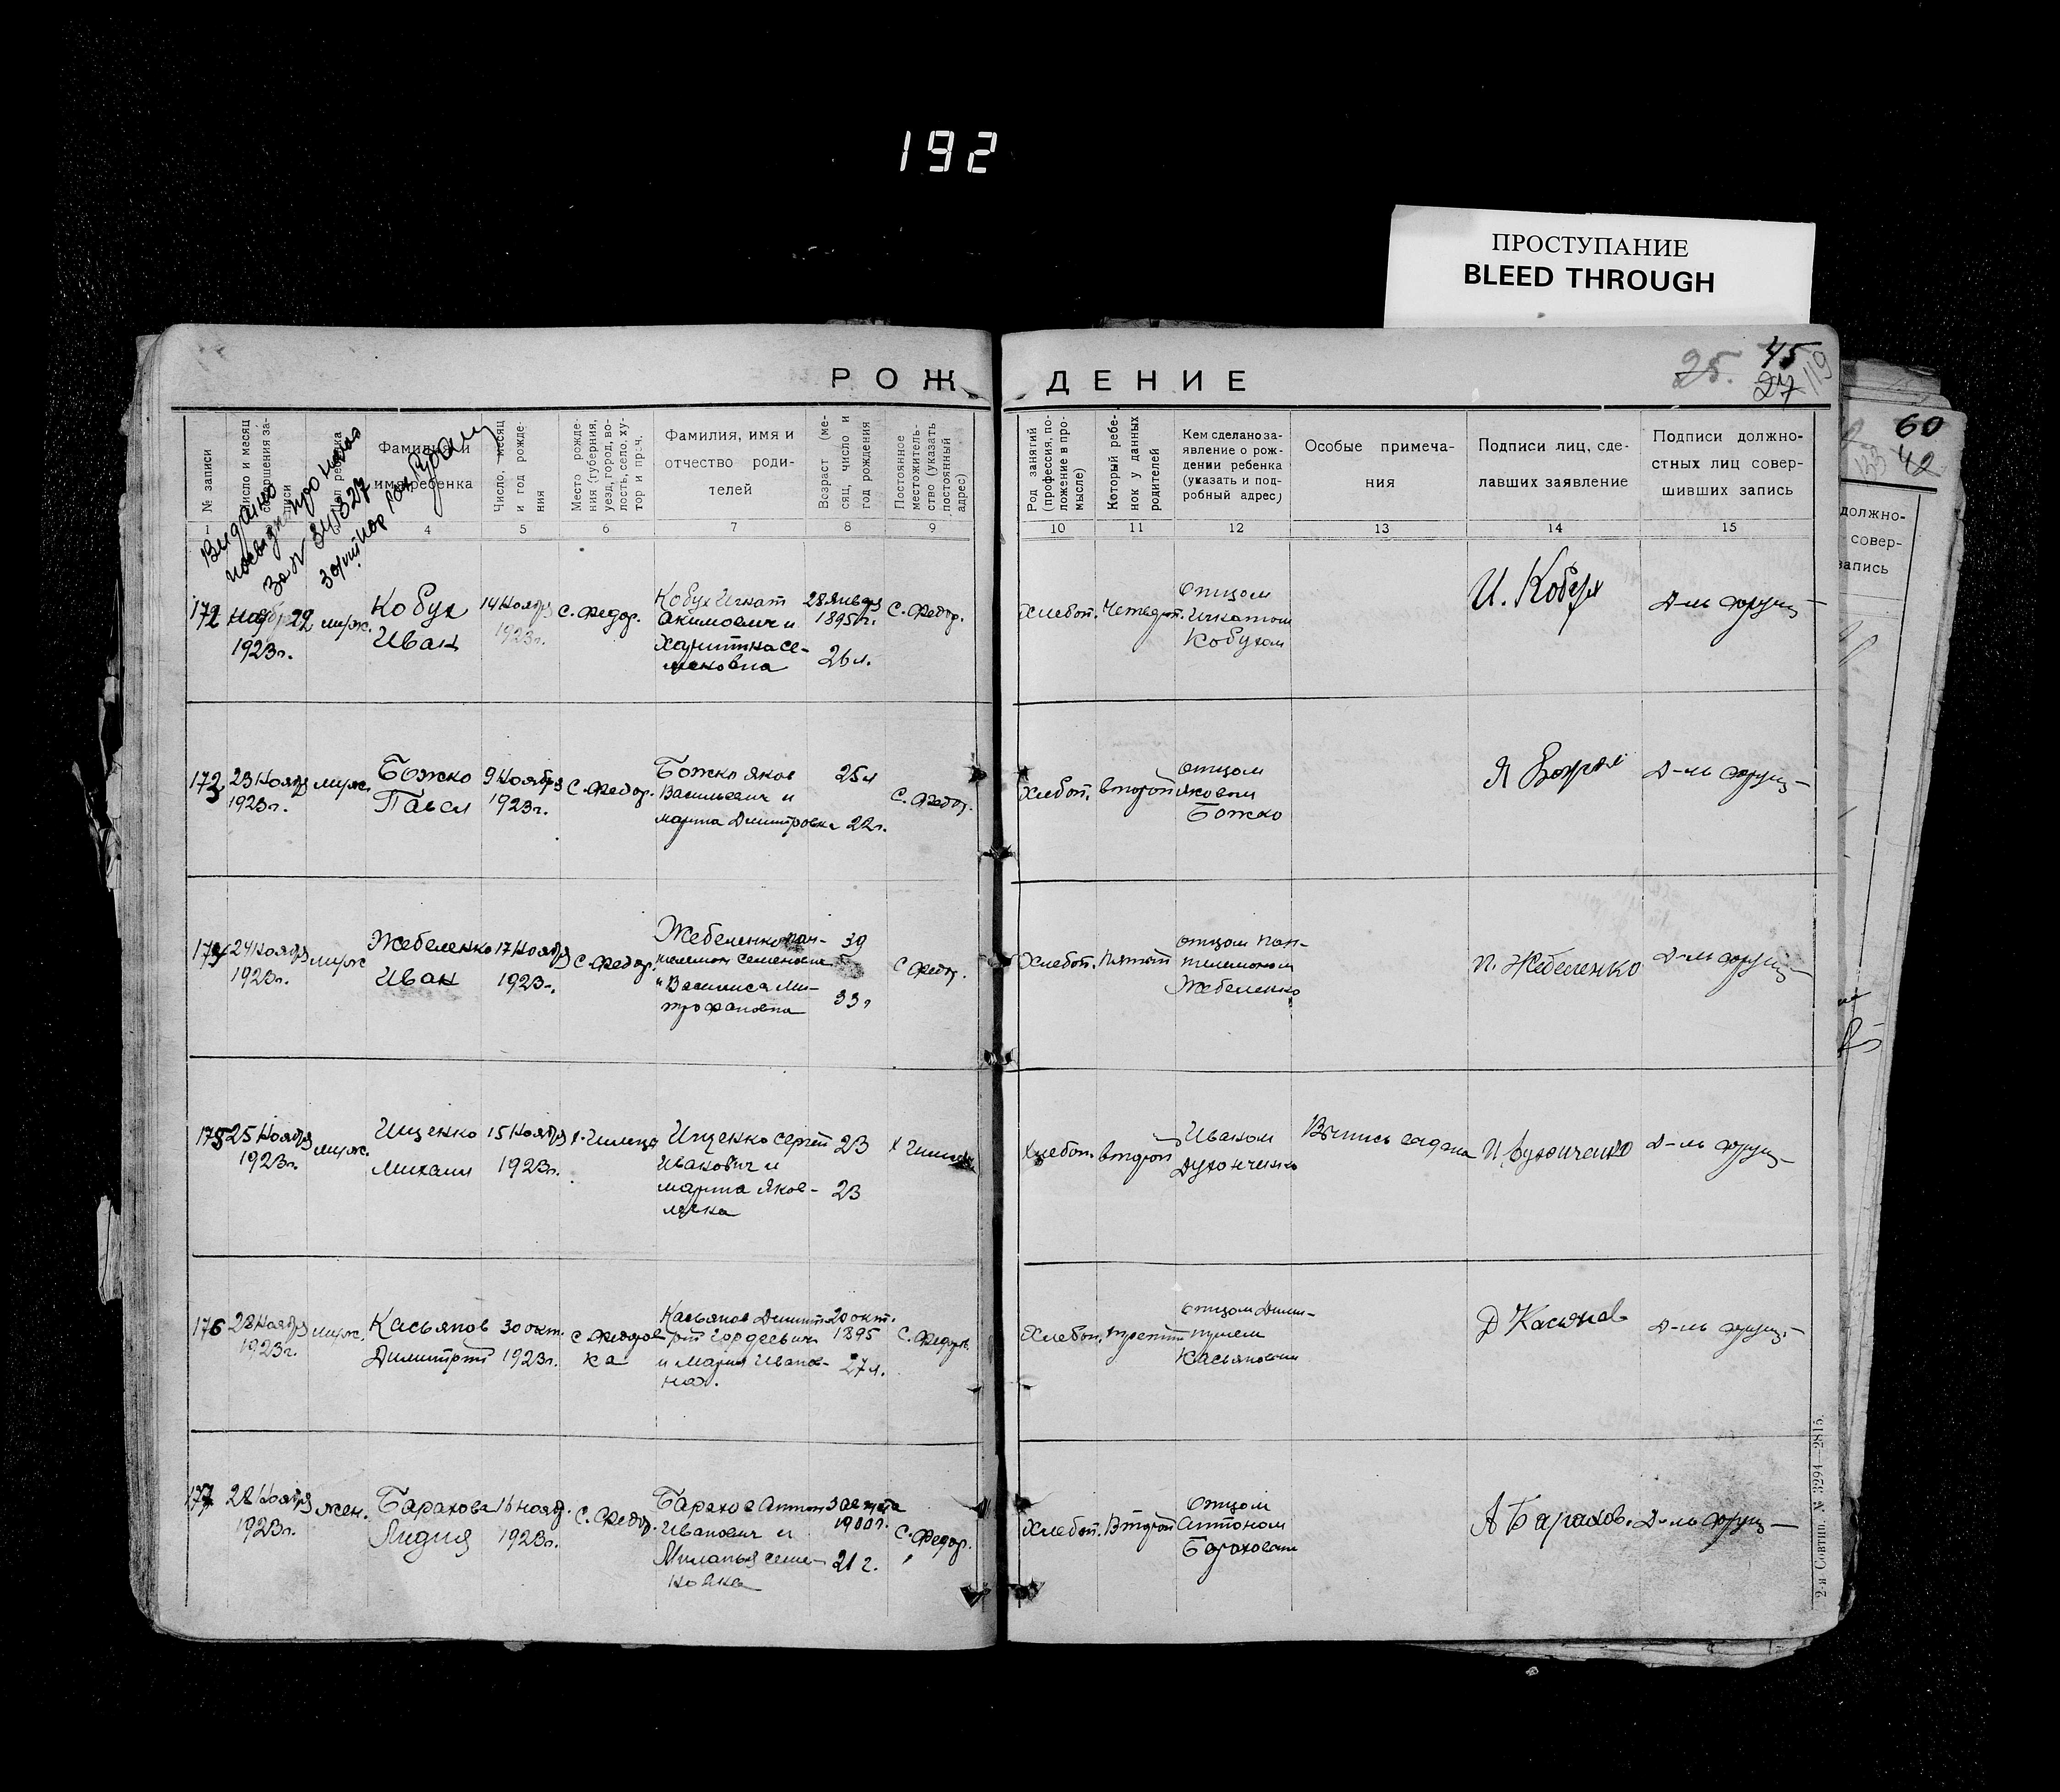 192
ПРОСТУПАНИЕ
BLEED THROUGH
РОЖДЕНИЕ
25.
45
27
119
60
42
133
№ записи
Число и месяц совершения записи
Пол ребенка
Фамилия и
имя ребенка
Число, месяц
и год рожде-
ния
Место рожде-
ния (губерния,
уезд, город, во-
лость, село, ху-
тор и проч.
Фамилия, имя и
отчество роди-
телей
Возраст (ме-
сяц, число и
год рождения
Постоянное
местожитель-
ство (указать
постоянный
адрес)
Род занятий
(профессия, по-
ложение в про-
мысле)
Который ребе-
нок у данных
родителей
Кем сделано за-
явление о рож-
дении ребенка
(указать и под-
робный адрес)
Особые примеча-
ния
Подписи лиц, сде-
лавших заявление
Подписи должно-
стных лиц совер-
шивших запись
должно-
совер-
запись
1
4
5
6
7
8
9
10
11
12
13
14
15
Видано
за № 341327
172
Ноябр 22
1923г.
муж.
Кобух
Иван
14 Ноябр
1923г.
С. Федор.
Кобух Игнат
Акимович и
Харитина Се-
меновна
28 Января
1895 г.
26 л.
С. Федор.
Хлебоп.
Четверт.
отцом
Игнатом
Кобухом
И. Кобух
173
23 Ноябр
1923г.
муж.
Божко
Павел
9 Ноября
1923г.
С. Федор.
Божко Яков
Васильевич и
Марта Димитровна
25 л
22 г.
С. Федор.
Хлебоп.
второй
отцом
Яковом
Божко
174
24 Ноябр
1923г.
муж
Жебеленко
Иван
17 Ноябр
1923г.
С. Федор.
Жебеленко Пан-
телемон Семенович
и Василиса Ми-
трофановна
39
33 г
С Федор.
Хлебоп.
пятый
отцом Пан-
телемоном
Жебеленко
П. Жебеленко
175
25 Ноябр
1923г.
муж.
Ищенко
Михаил
15 Ноябр
1923г.
Ищенко Сергей
Иванович и
Марта Яков-
левна
23
23
Хлебоп.
второй
Иваном
Духонченко
Выпись выдана
176
28 Ноябр
1923г.
муж.
Касьянов
Димитрий
30 окт.
1923г.
С Федоров
ка
Касьянов Димит-
рий Гордеевич
и Мария Иванов-
на.
20 окт.
1895
27 л.
С. Федоров.
Хлебоп.
третий
отцом Дими-
трием
Касьяновым
Д Касянов
177
28 Ноябр
1923г.
жен.
Барахова
Лидия
16 Нояб.
1923г.
С. Федор.
Барахов Антон
Иванович и
Миланья Семе-
новна
3 августа
1900 г.
21 г.
С. Федор.
Хлебоп.
Второй
Отцом
Антоном
Бараховым
А Барахов.
2-я Совтип. № 3294—2815.